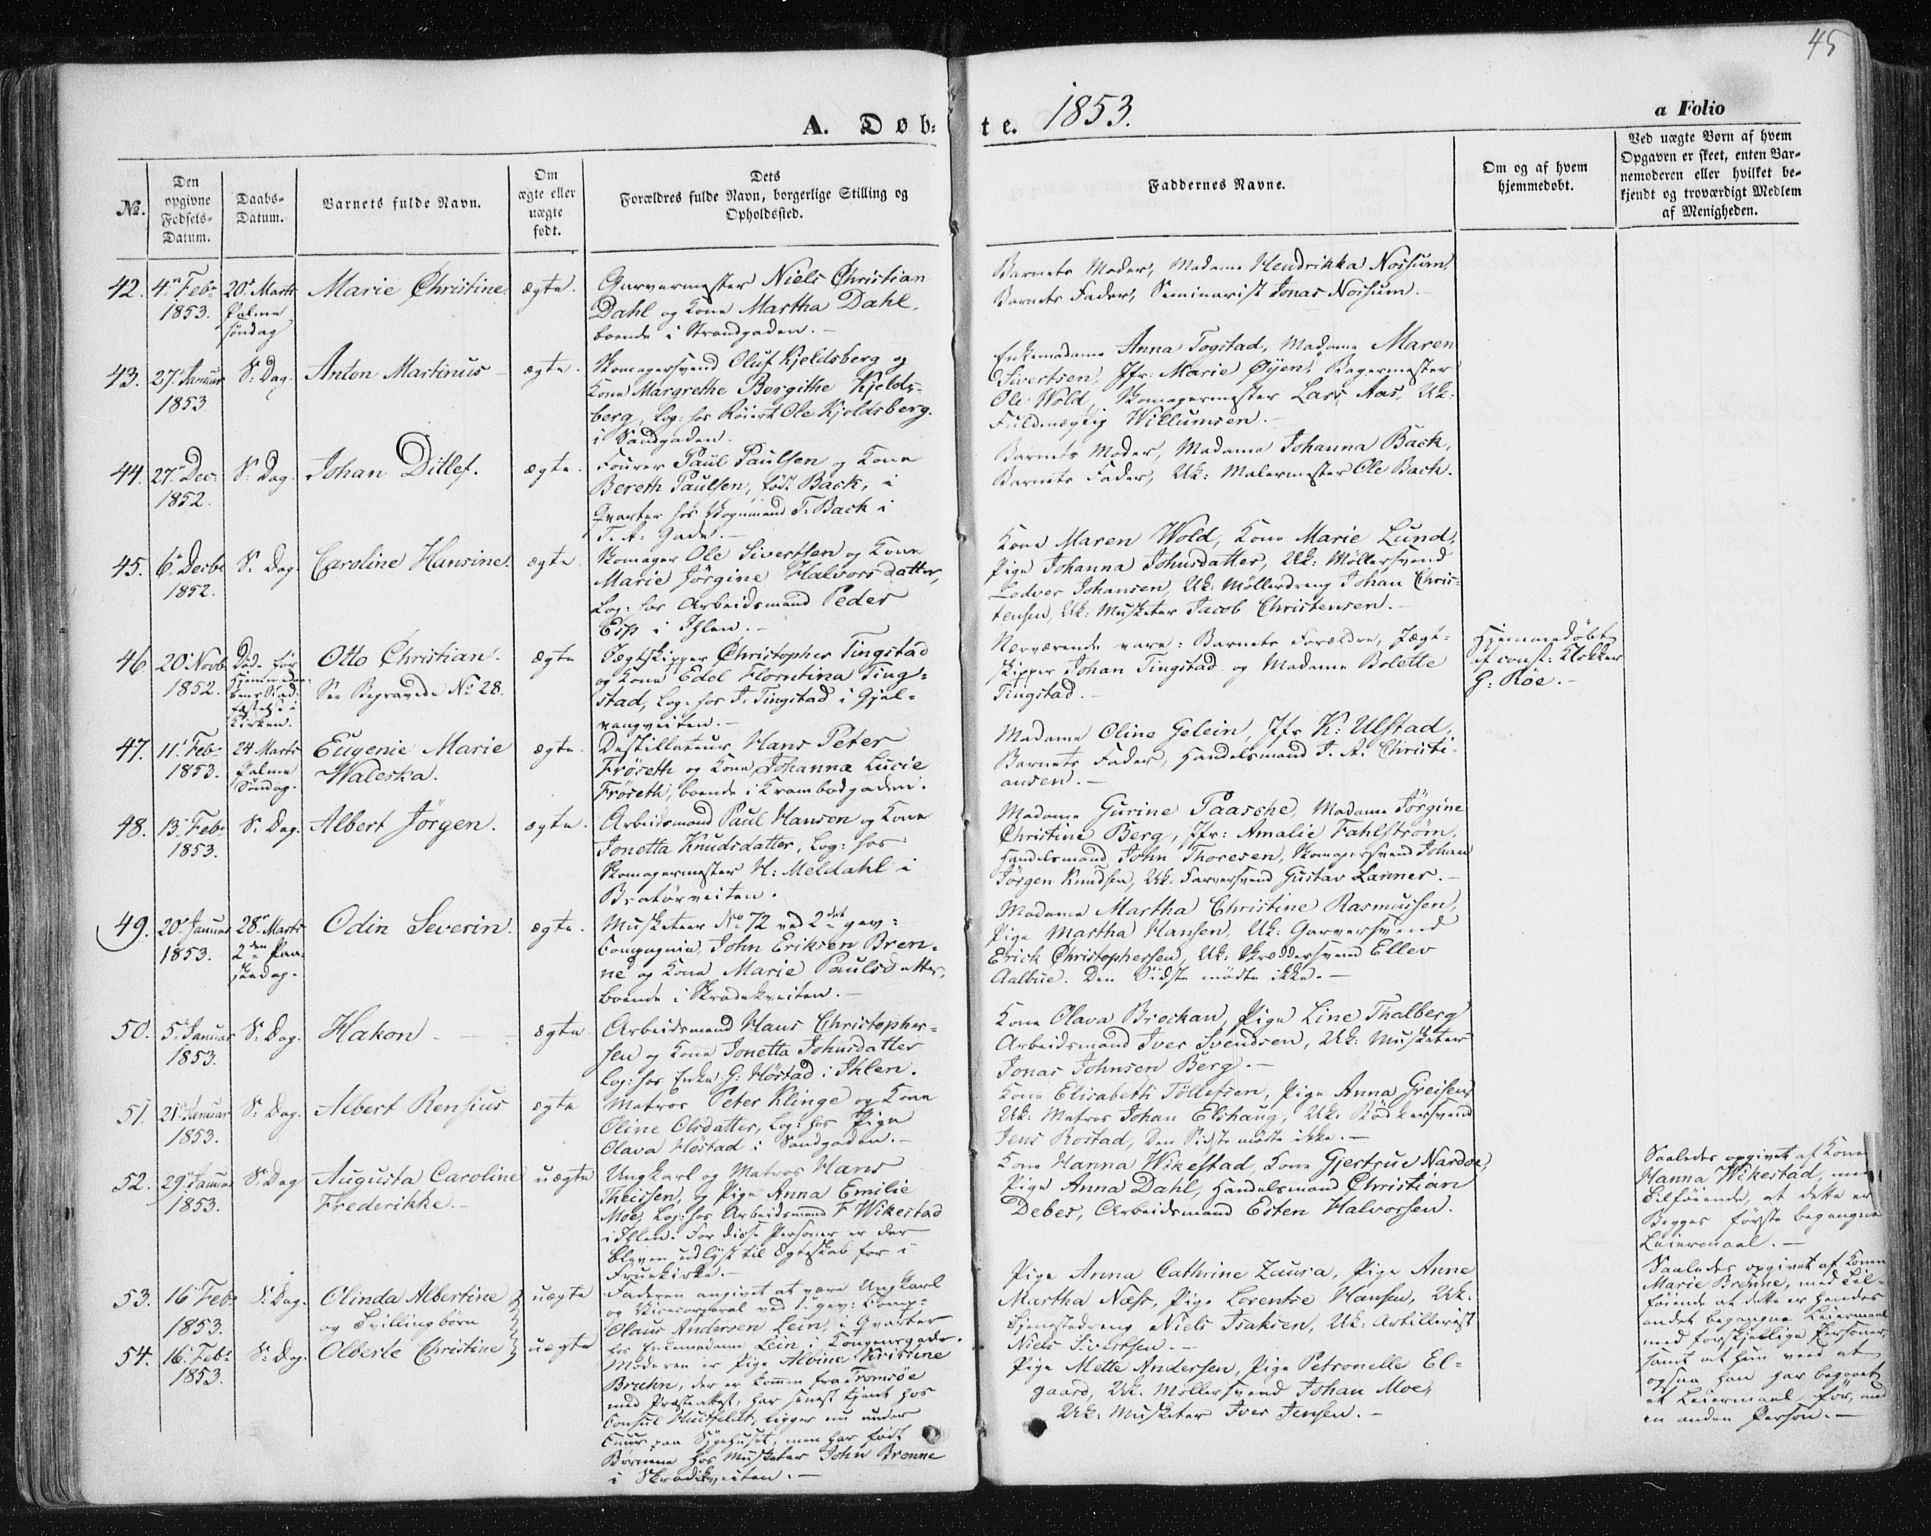 45
A. Døbte. 1853.
a Folio
No.
Den opgivne Fødsels-Datum.
Daabs-Datum.
Barnets fulde Navn.
Om ægte eller uægte født.
Dets Forældres fulde Navn, borgerlige Stilling og Opholdssted.
Faddernes Navne.
Om og af hvem hjemmedøbt.
Ved uægte Børn af hvem Opgaven er skeet, enten Barnemoderen eller hvilket bekjendt og troværdigt Medlem af Menigheden.
42. 4de Feb. 1853. 20de Marts Palme søndag Marie Christine. ægte.
Garvermester Niels Christian
Dahl og Kone Martha Dahl,
boende i Strandgaden.
Barnets Moder, Madame Hendrikka Nossum,
Barnets Fader, Seminarist Jonas Nossum.
43. 27de Januar 1853 S: Dag. Anton Martinus ægte.
Skomagersvend Oluf Kjeldsberg og
Kone Margrethe Bergithe Kjelds-
berg, Log: hos Røiert Ole Kjeldsberg.
i Sandgaden.
Enkemadame Anna Togstad, Madame Maren
Sivertsen, Jfr: Marie Øyen, Bagermester
Ole Wold, Skomagermester Lars Aas, Uk:
Fuldmægtig Willumsen.
44. 27de Dec: 1852. S: Dag. Johan Ditlef. ægte.
Fourer Paul Paulsen og Kone
Bereth Paulsen, født Back, i
Qvarter hos Vognmand T. Back i
T. A. Gade.
Barnets Moder, Madame Johanna Back,
Barnets Fader, Uk: Malermester Ole Bach.
45. 6te Decbr 1852. S: Dag. Caroline Hansine. ægte.
Skomager Ole Sivertsen og Kone
Marie Jörgine Halvorsdatter,
Log: hos Arbeidsmand Peder
Esp i Ihlen.
Kone Maren Wold, Kone Marie Lund,
Pige Johanna Johnsdatter, Uk: Møllersvend
Ledver Johansen, Uk: Møllerdreng Johan Chris-
tensen, Uk: Musketer Jacob Christensen.
46 20de Novb. 1852. Døde før Hjemmedaabens Stadfæstelse i Kirken. Otto Christian.
See Begravede No 28. ægte
Jægtskipper Christopher Tingstad
og Kone Edel Florntina Ting-
stad, Log: hos J. Tingstad i Gjel-
vangveiten.
Nærværende vare: Barnets Forældre, Jægt-
skipper Johan Tingstad og Madame Bolette
Tingstad.
Hjemmedøbt
af const: Klokker
G: Röe.
47. 11te Feb. 1853. 24 Marts Palme Søndag. Eugenie Marie
Waleska. ægte.
Destillateur Hans Peter
Fröseth og Kone, Johanna Lucie
Fröseth, boende i Krambodgaden.
Madame Oline Gelein, Jfr K: Ulstad,
Barnets Fader, Handelsmand J. A. Christi-
ansen.
48. 13de Feb. 1853. S: Dag. Albert Jörgen. ægte.
Arbeidsmand Paul Hansen og Kone
Jonetta Knudsdatter, Log: hos
Skomagermester H: Meldahl i
Bratörveiten.
Madame Gurine Paasche, Madame Jörgine
Christine Berg, Jfr: Amalie Fahlström,
Handelsmand John Thoresen, Skomagersvend Johan
Jörgen Knudsen, Uk. Farversvend Gustav Lanner.
49. 20de Januar 1853. 28de Marts 2den Paaskedag. Odin Severin. ægte.
Musketeer No 72 ved 2det gev:
Compagnie, John Eriksen Bren-
ne og Kone Marie Paulsdatter,
boende i Skradekveiten.
Madame Martha Christine Rasmussen,
Pige Martha Hansen, Uk: Garversvend
Erick Christophersen, Uk: Skreddersvend Ellev
Aalbue. Den Sidste mødte ikke.
50. 5te Januar 1853. S: Dag. Hakon. ægte
Arbeidsmand Hans Christopher-
sen og Kone Jonetta Johnsdatter
Log: hos Enke G: Höstad i Ihlen.
Kone Olava Breckan, Pige Line Thalberg
Arbeidsmand Iver Svendsen, Uk: Musketer
Jonas Johnsen Berg.
51. 21de Januar 1853. S: Dag. Albert Rensius ægte
Matros Peter Klinge og Kone
Oline Olsdatter, Log: hos Pige
Olava Höstad i Sandgaden.
Kone Elisabeth Töllefsen, Pige Anna Greisen,
Uk: Matros Johan Elshaug, Uk: Bödkersvend
Jens Rostad, Den Sidste mødte ikke.
52. 29de Januar 1853. S: Dag Augusta Caroline
Frederikke. uægte
Ungkarl og Matros Hans
Theissen, og Pige Anna Emilie
Moe, Log: hos Arbeidsmand F Wikestad
i Ihlen. For disse Personer er der
bleven udlyst til Egteskab for i
Fruekirke.
Kone Hanna Wikestad, Kone Gjertrud Nardoe,
Pige Anna Dahl, Handelsmand Christian
Debes, Arbeidsmand Esten Halvorsen.
Saaledes opgivet af Kone
Hanna Wikestad, med
Tilføiende, at dette er
Begges første begangne
Leiermaal.
53. 16 Feb. 1853. S: Dag. Olinda Albertine
og Tvillingbörn uægte
54. 16de Feb. 1853. S: Dag. Olberte Christine uægte
Faderen angivet at være Ungkarl
og Vicecorporal ved 1. gev: Comp:
Olaus Andersen Lein, i Qvarter
hos Enkemadame Lein i Kongensgade.
Moderen er Pige Alvine Kristine
Bruhn, der er kommen fra Tromsöe
med Præsteattest, har senest tjent hos
Consul Huitfeldt, ligger nu under
Cuur paa Sygehuset, men har født
Børnene hos Musketer John Brenne
i Skradekveiten.
Pige Anna Cathrine Zaura, Pige Anne
Martha Næss, Pige Lorentse Hansen, Uk.
Tjenestedreng Niels Isaksen, Uk: Artillerist
Niels Sivertsen.
Pige Mette Andersen, Pige Petronelle El-
gaard, Uk. Møllersvend Johan Moe,
Uk: Musketer Iver Jensen.
Saaledes opgivet af Kone
Marie Brenne, med Til-
føiende at dette er hendes
andet begangne Leiermaal
med forskjellige Personer,
samt at hun veed at
ogsaa han har begaaet
et Leiermaal før, med
en anden Person.